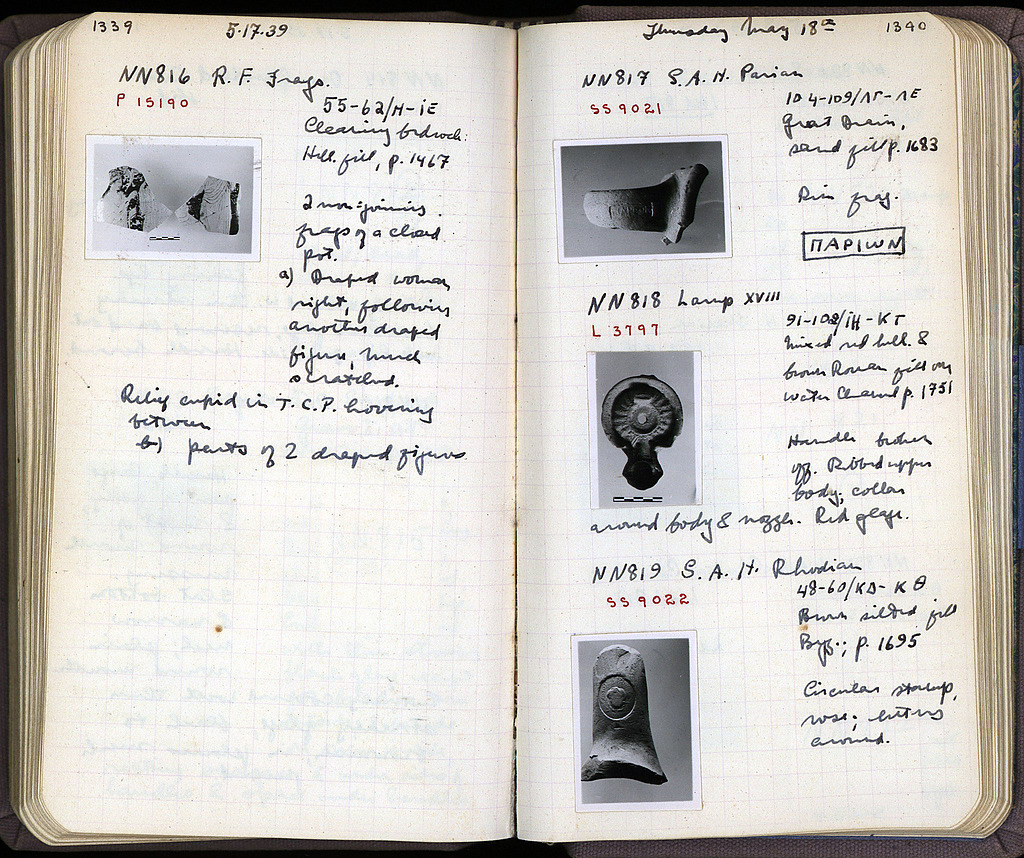 1339
5·17·39
NN816 R. F. Frags.
P 15190
55-62/H-iE
Clearing bedrock:
Hell. fill, p. 1467
2 non-joining
frags of a closed
pot.
a) Draped woman
right, following
another draped
figure, much
scratched.
Relief cupid in T.C.P. hovering
between
b) parts of 2 draped figures
Thursday May 18th
1340
NN817 S. A. H. Parian
SS 9021
104-109/ΛΓ-ΛΕ
Great Drain,
sand fill p. 1683
Rim frag.
ΠΑΡΙΩΝ
NN818 Lamp XVIII
L 3797
91-102/iH-KΓ
Mixed red hell. &
brown Roman fill
water channel p. 1751
Handle broken
off. Ribbed upper
body; collar
around body & nozzle. Red glaze.
NN819 S. A. H. Rhodian
SS 9022
48-60/KΔ-KΘ
Brown silted fill
Byz.; p. 1695
Circular stamp,
rose; letters
around.